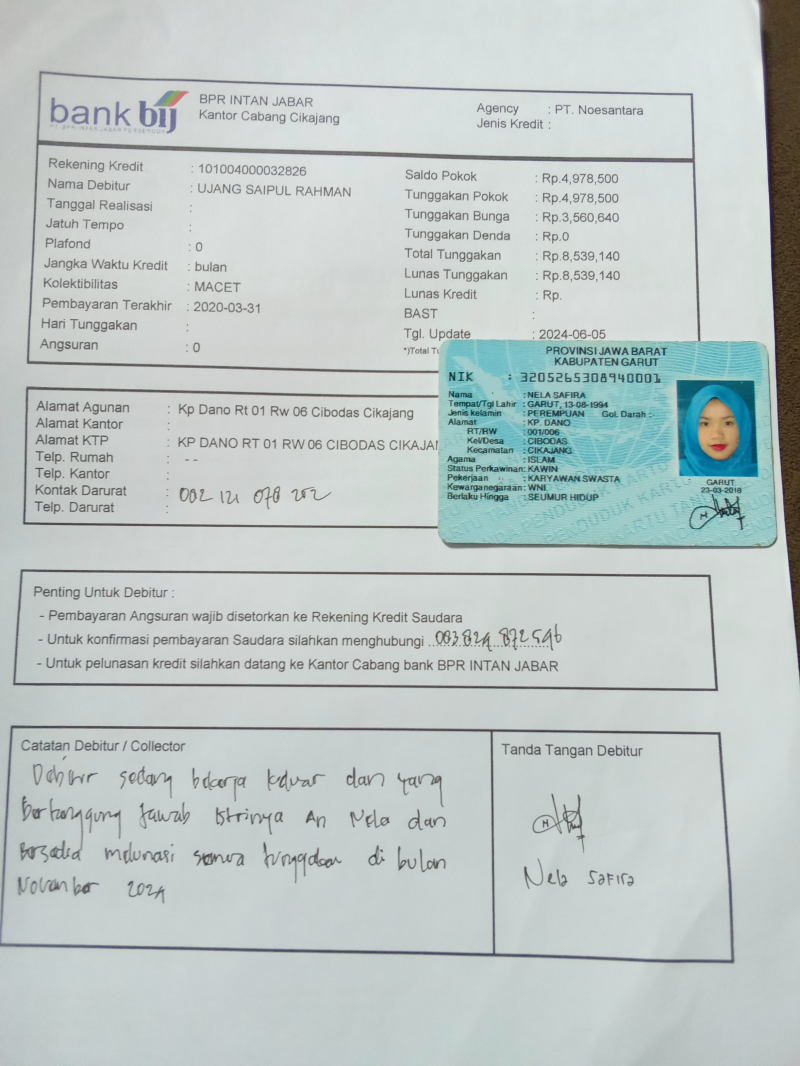 bank bij
PT. BPR INTAN JABAR PERSERODA
BPR INTAN JABAR
Kantor Cabang Cikajang
Agency : PT. Noesantara
Jenis Kredit :
Rekening Kredit : 101004000032826
Nama Debitur : UJANG SAIPUL RAHMAN
Tanggal Realisasi :
Jatuh Tempo :
Plafond : 0
Jangka Waktu Kredit : bulan
Kolektibilitas : MACET
Pembayaran Terakhir : 2020-03-31
Hari Tunggakan :
Angsuran : 0
Saldo Pokok : Rp.4,978,500
Tunggakan Pokok : Rp.4,978,500
Tunggakan Bunga : Rp.3,560,640
Tunggakan Denda : Rp.0
Total Tunggakan : Rp.8,539,140
Lunas Tunggakan : Rp.8,539,140
Lunas Kredit : Rp.
BAST :
Tgl. Update : 2024-06-05
*)Total Tu
PROVINSI JAWA BARAT
KABUPATEN GARUT
NIK : 3205265308940001
Nama : NELA SAFIRA
Tempat/Tgl Lahir : GARUT, 13-08-1994
Jenis kelamin : PEREMPUAN Gol. Darah : -
Alamat : KP. DANO
RT/RW : 001/006
Kel/Desa : CIBODAS
Kecamatan : CIKAJANG
Agama : ISLAM
Status Perkawinan: KAWIN
Pekerjaan : KARYAWAN SWASTA
Kewarganegaraan: WNI
Berlaku Hingga : SEUMUR HIDUP
GARUT
23-03-2018
Alamat Agunan : Kp Dano Rt 01 Rw 06 Cibodas Cikajang
Alamat Kantor :
Alamat KTP : KP DANO RT 01 RW 06 CIBODAS CIKAJAN
Telp. Rumah : --
Telp. Kantor :
Kontak Darurat :
Telp. Darurat :
Penting Untuk Debitur :
- Pembayaran Angsuran wajib disetorkan ke Rekening Kredit Saudara
- Untuk konfirmasi pembayaran Saudara silahkan menghubungi 083 829 872 596
- Untuk pelunasan kredit silahkan datang ke Kantor Cabang bank BPR INTAN JABAR
Catatan Debitur / Collector
Debitur sedang bekerja keluar dan yang
Bertanggung jawab Istrinya An Nela dan
Bersedia melunasi semua tunggakan di bulan
November 2024
Tanda Tangan Debitur
Nela SaFira